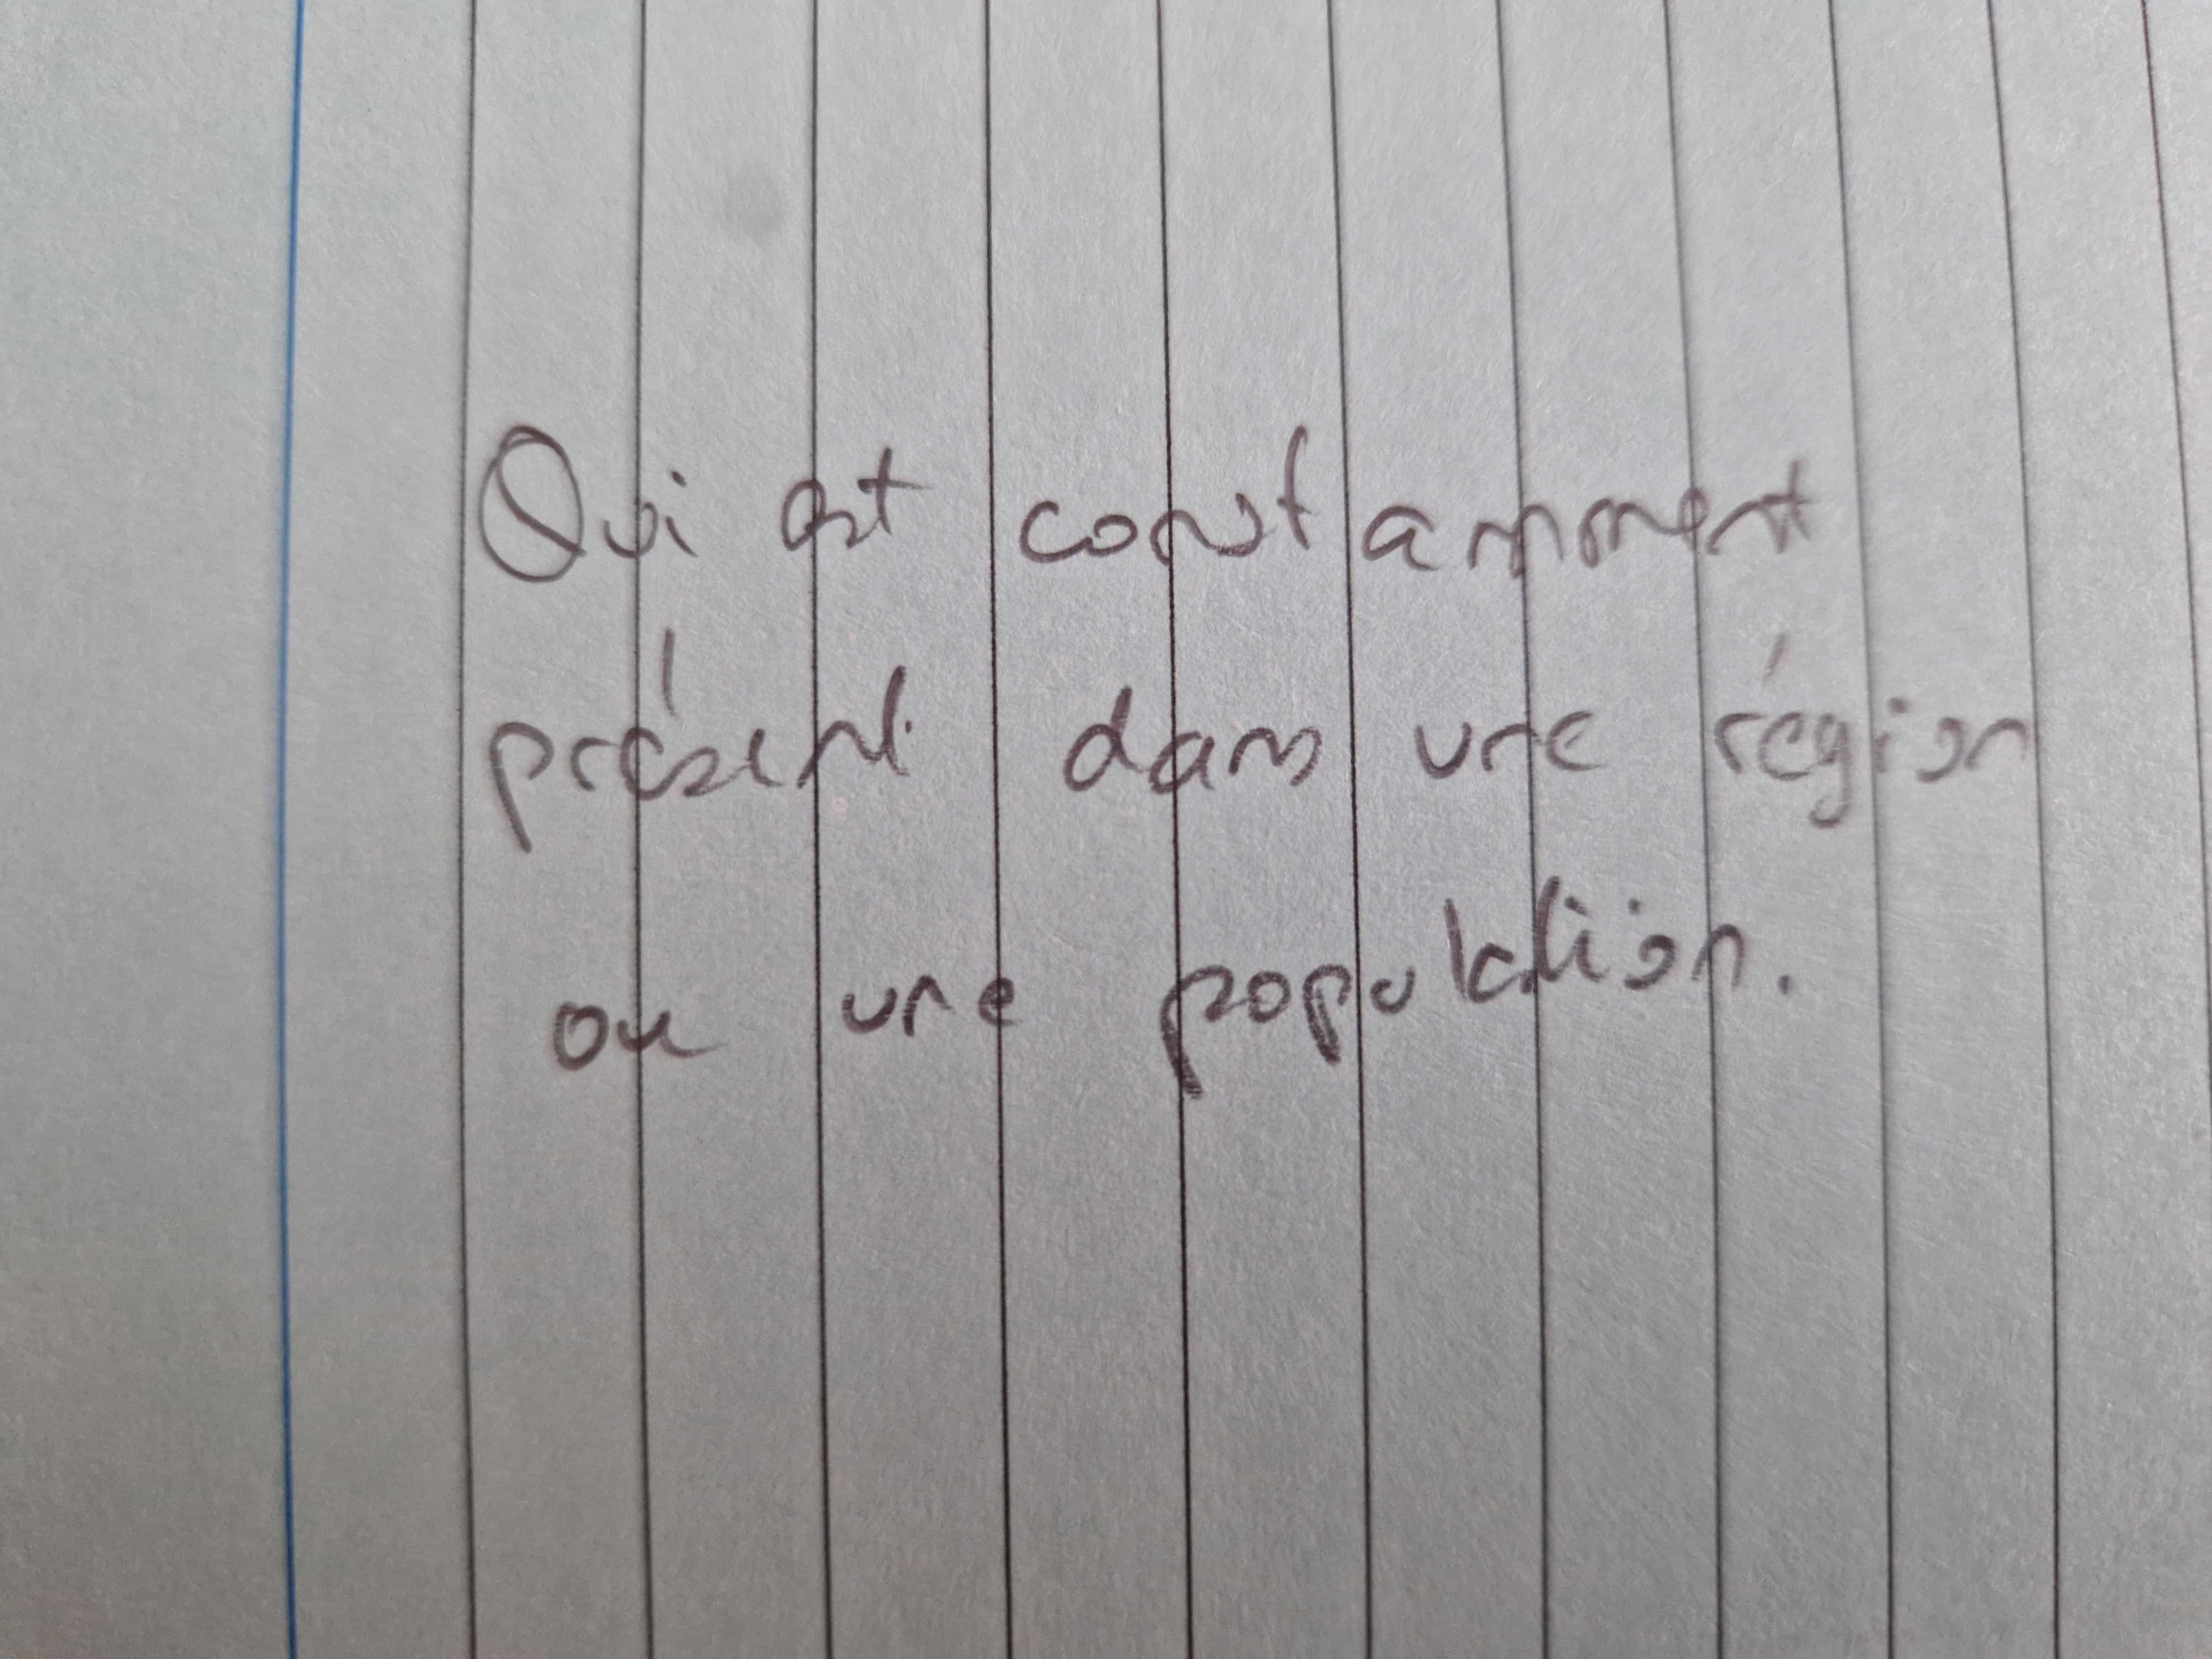 Qui est constamment
présent dans une région
ou une population.